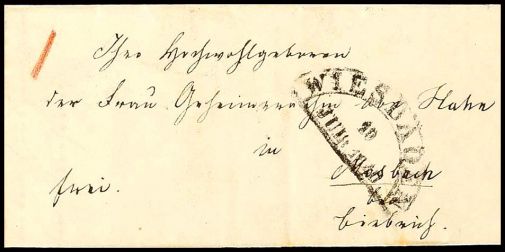 Ihro Hochwohlgeboren
der Frau Geheimeräthin von Hahn
in
Mosbach
frei. bei
Biebrich.
WIESBADEN
20
JULI